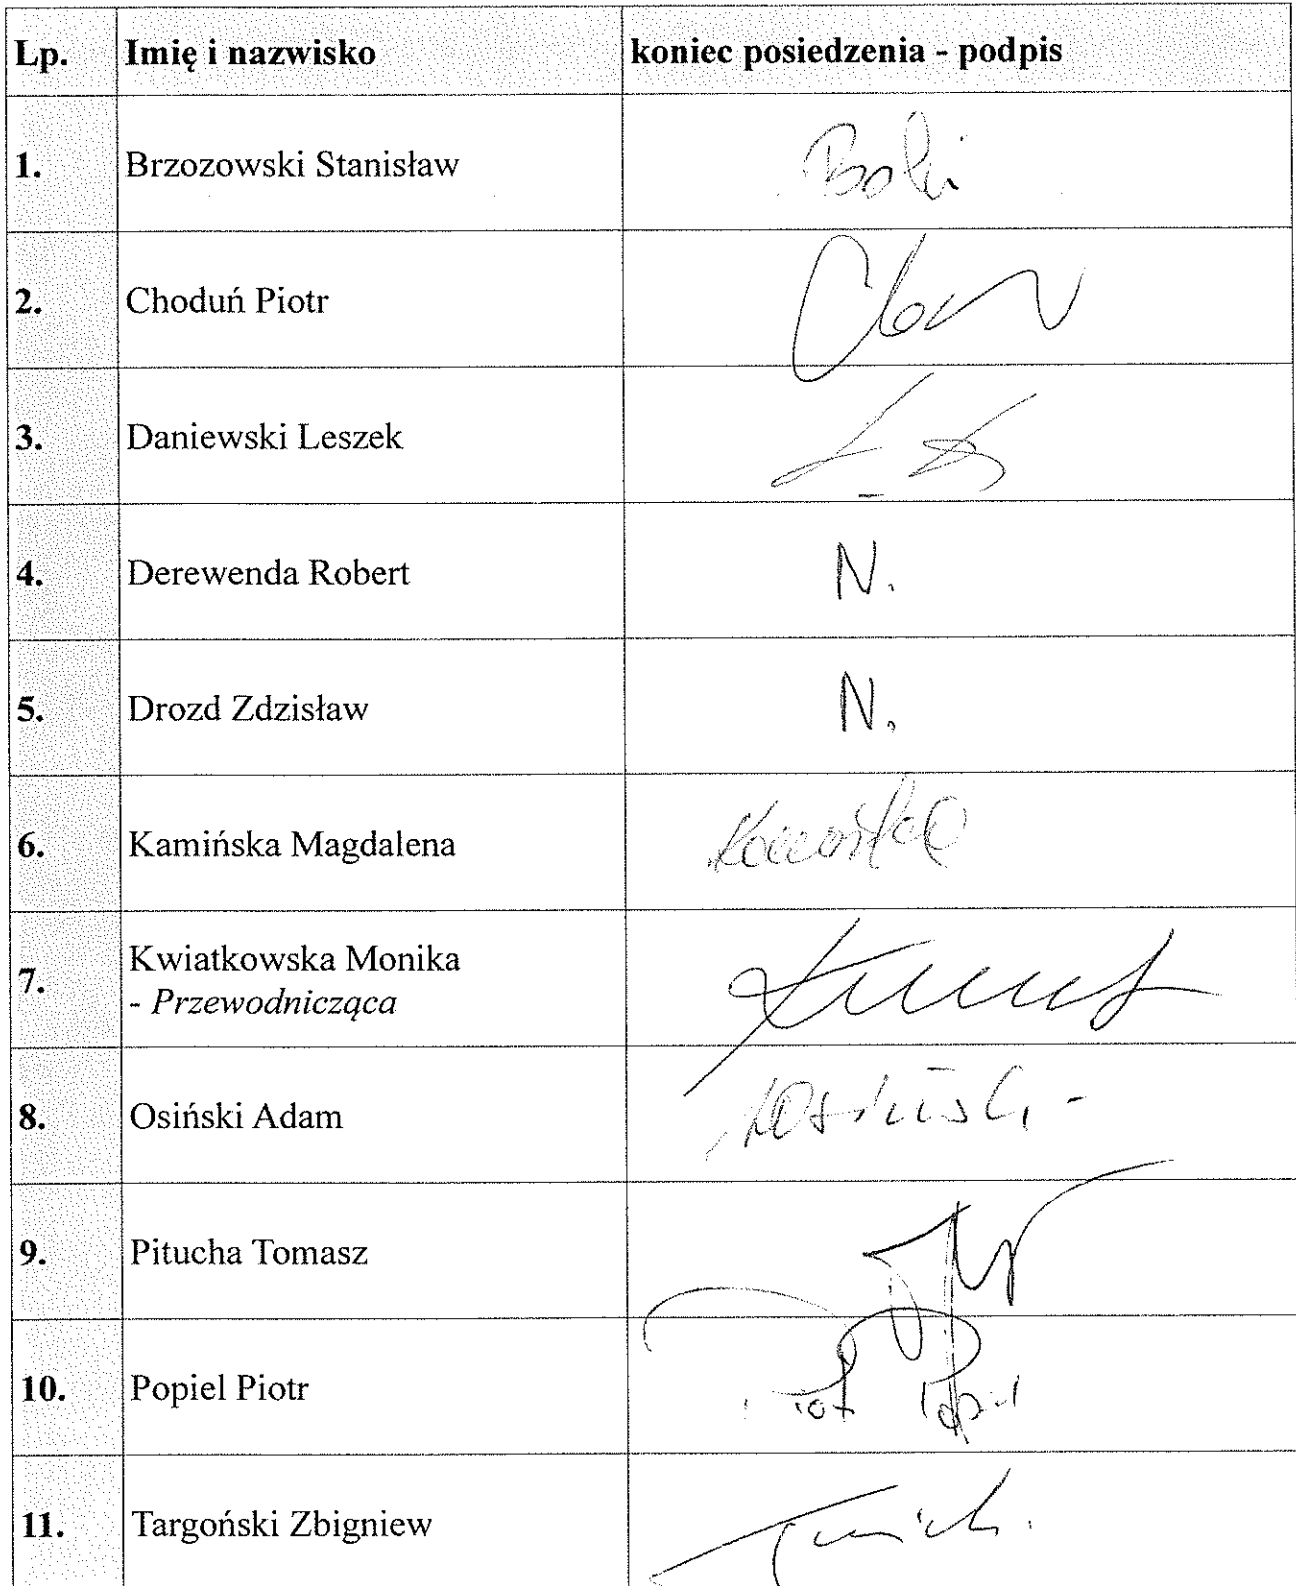 Lp. Imię i nazwisko koniec posiedzenia - podpis
1. Brzozowski Stanisław
2. Choduń Piotr
3. Daniewski Leszek
4. Derewenda Robert N.
5. Drozd Zdzisław N.
6. Kamińska Magdalena
7. Kwiatkowska Monika
- Przewodnicząca
8. Osiński Adam
9. Pitucha Tomasz
10. Popiel Piotr Piotr Popiel
11. Targoński Zbigniew